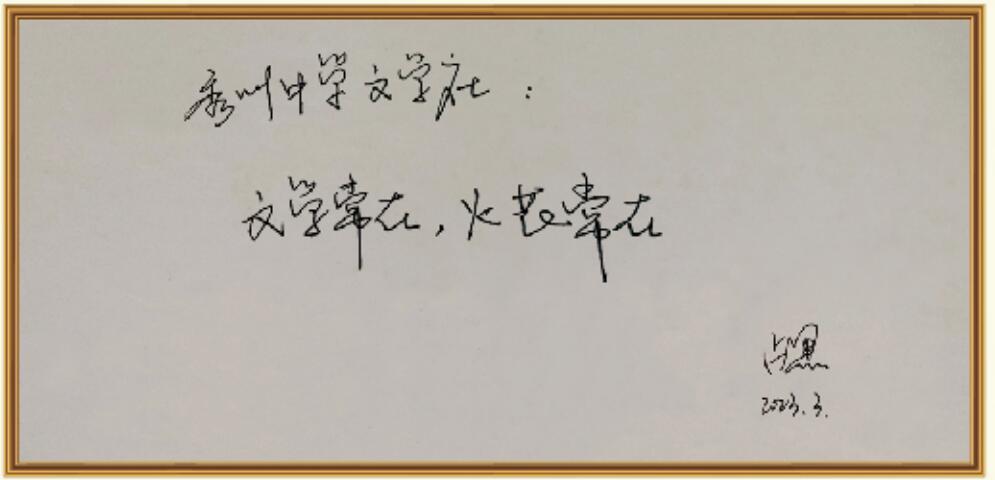 秀州中学文学社：
文学常在，火常在
占黑
2023.3.